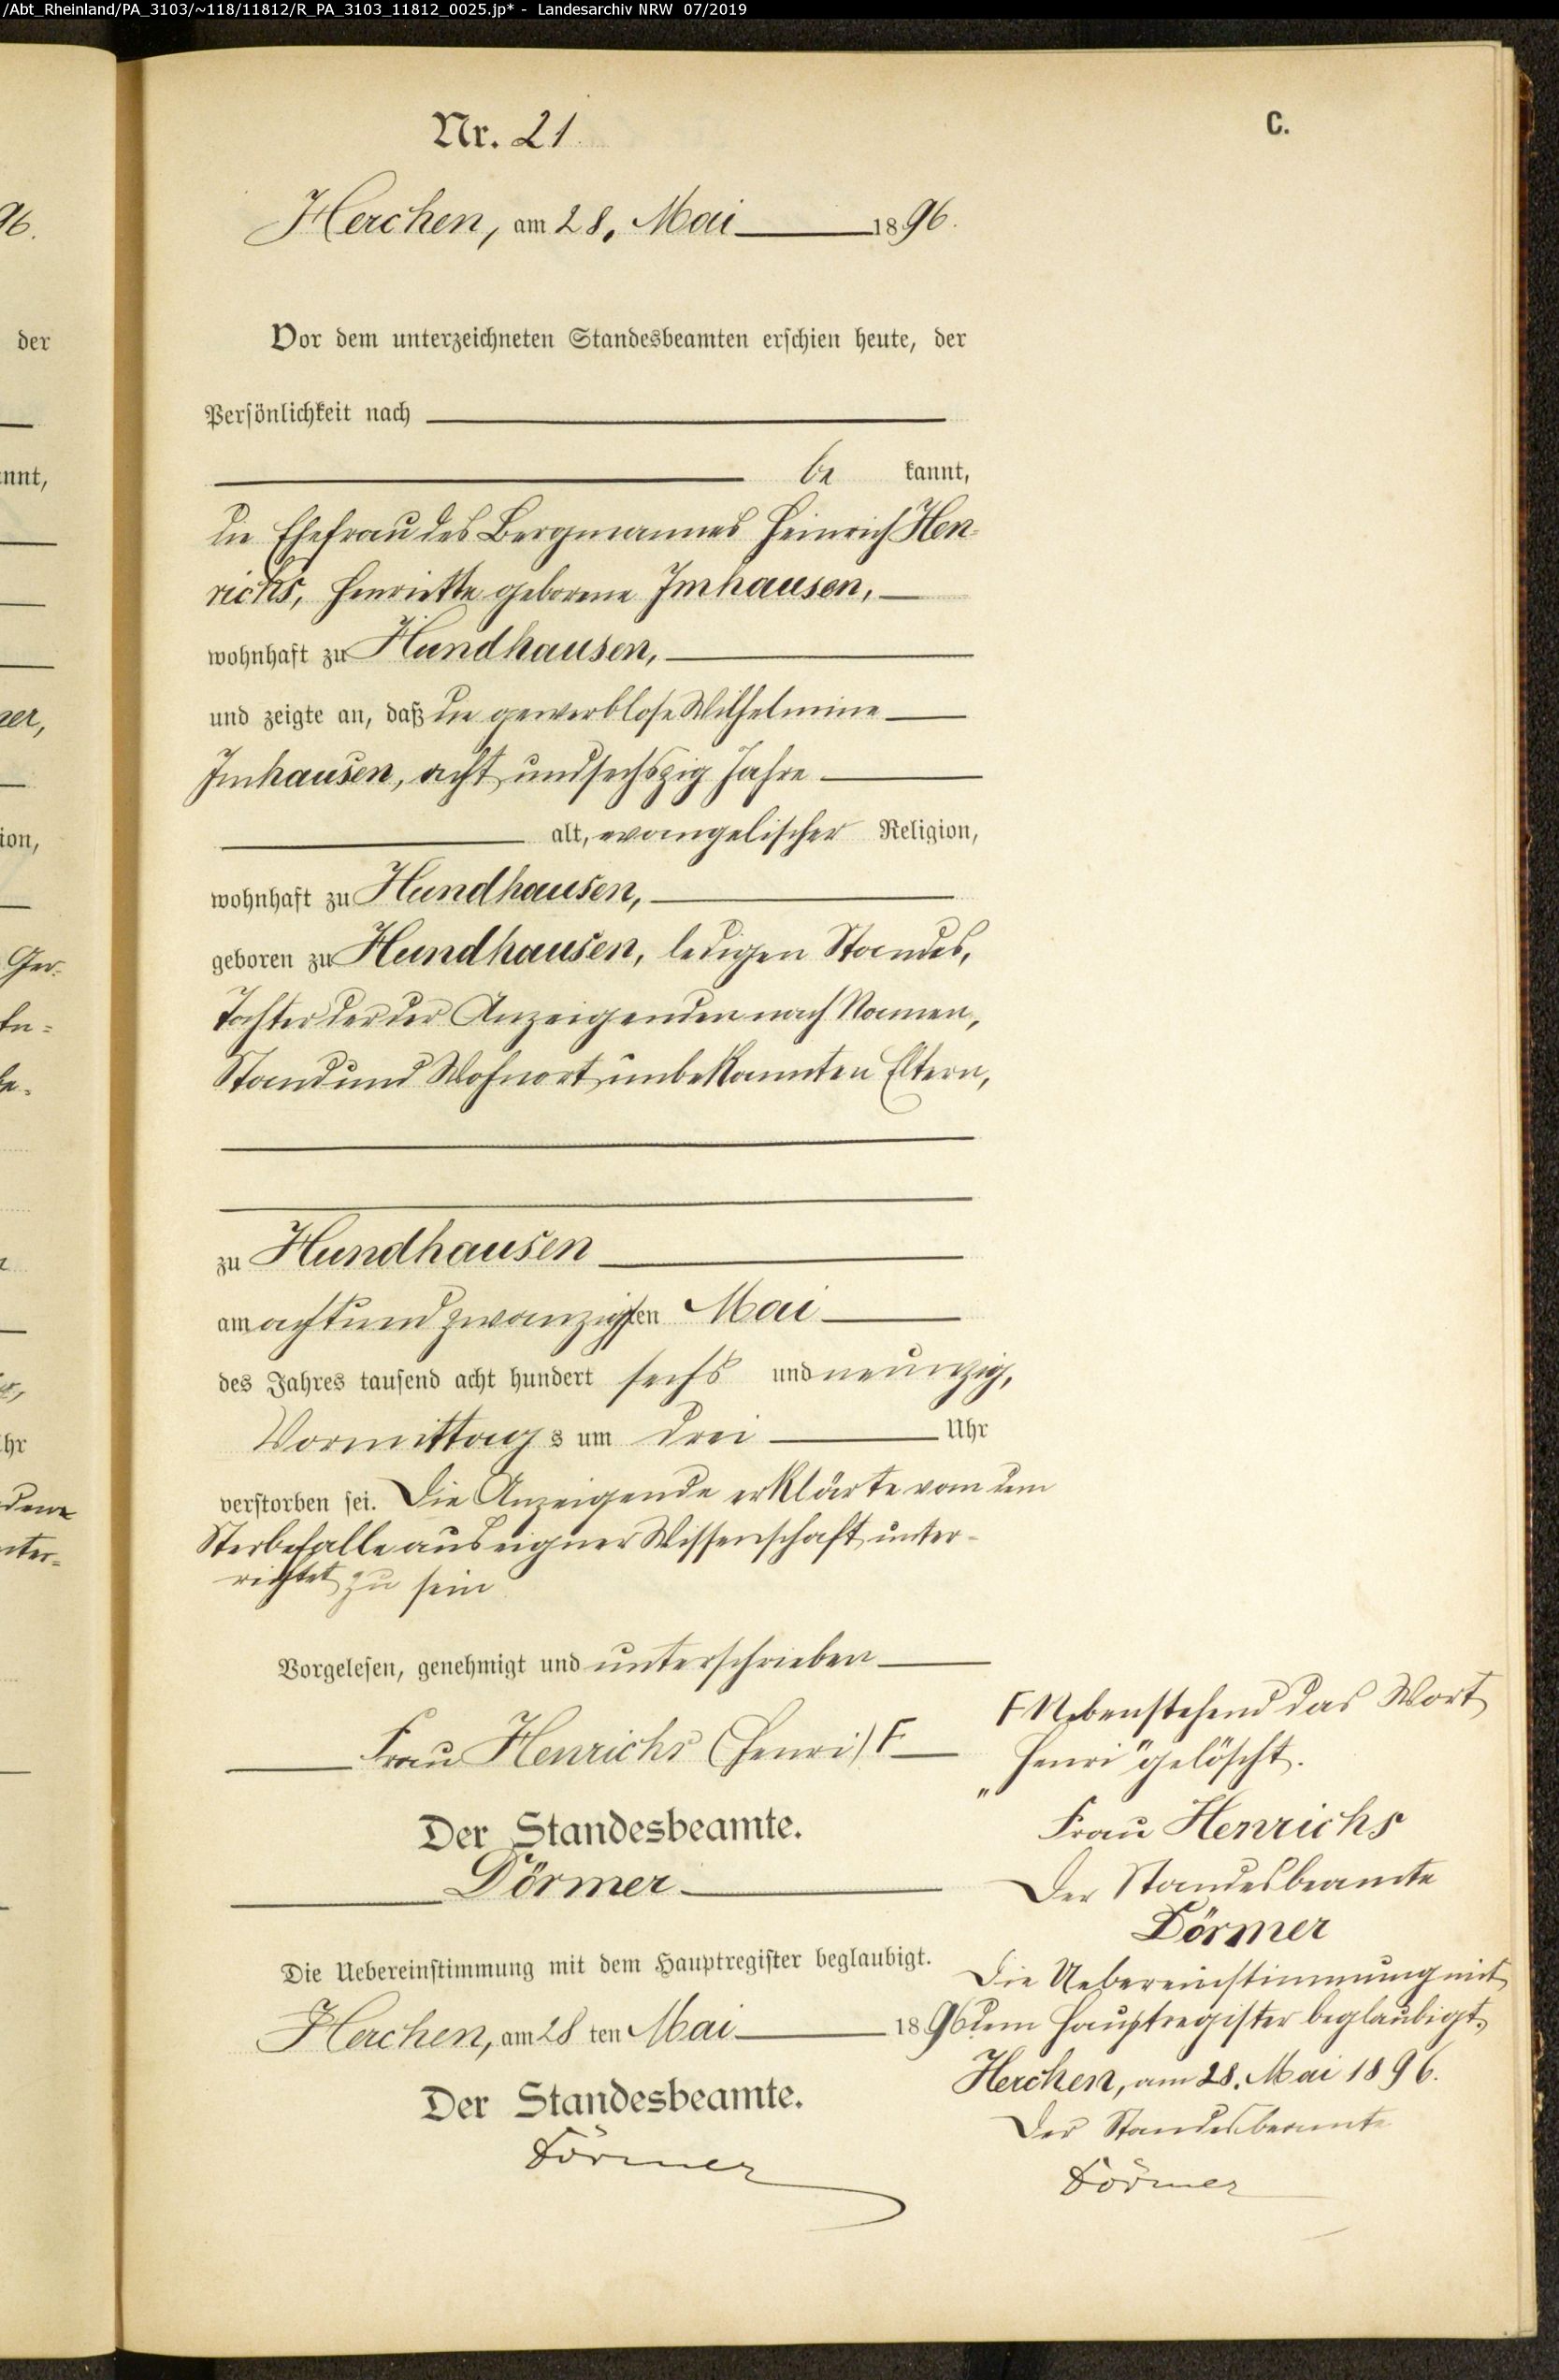 /Abt_Rheinland/PA_3103/~118/11812/R_PA_3103_11812_0025.jp* - Landesarchiv NRW 07/2019
96.
der
nnt,
ner,
ion,
Ger-
hr
nter-
Nr. 21.
C.
Herchen, am 28. Mai 1896.
Vor dem unterzeichneten Standesbeamten erschien heute, der
Persönlichkeit nach
be kannt,
die Ehefrau des Bergmannes Heinrich Hen-
richs, Henriette geborene Imhausen,
wohnhaft zu Hundhausen,
und zeigte an, daß die gewerblose Wilhelmine
Imhausen, acht und sechszig Jahre
alt, evangelischer Religion,
wohnhaft zu Hundhausen,
geboren zu Hundhausen, ledigen Standes,
Tochter der der Anzeigenden nach Namen,
Stand und Wohnort unbekannten Eltern,
zu Hundhausen
am achtundzwanzigsten Mai
des Jahres tausend acht hundert sechs und neunzig,
Vormittags um drei Uhr
verstorben sei. Die Anzeigende erklärte von dem
Sterbefalle aus eigner Wissenschaft unter-
richtet zu sein
Vorgelesen, genehmigt und unterschrieben
Frau Henrichs (Henri) F
Der Standesbeamte.
Dörmer
Die Uebereinstimmung mit dem Hauptregister beglaubigt.
Herchen, am 28 ten Mai 1896
Der Standesbeamte.
Dörmer
F Nebenstehend das Wort
„Henri" gelöscht.
Frau Henrichs
Der Standesbeamte
Dörmer
Die Uebereinstimmung mit
dem Hauptregister beglaubigt.
Herchen, am 28. Mai 1896.
Der Standesbeamte
Dörmer